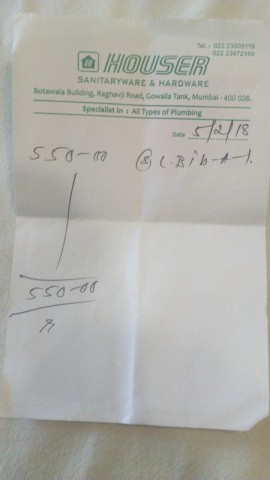 Tel.: 022 23809118
022 23872169
HOUSER
SANITARYWARE & HARDWARE
Botawala Building, Raghavji Road, Gowalia Tank, Mumbai - 400 036.
Specialist In : All Types of Plumbing
Date 5/2/18
550-00
550-00